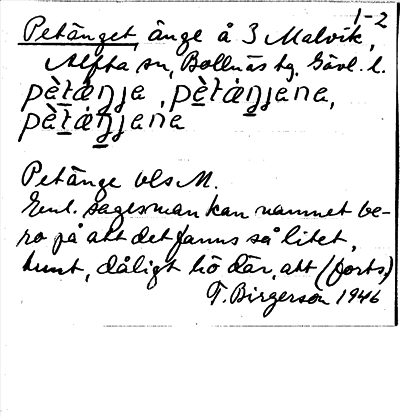 1-2
Petänget, änge å 3 Malvik,
Alfta sn, Bollnäs tg. Gävl. l.
pètäŋja, pètáŋjana,
pètáŋjana
Petänge bls M.
Enl. sagesman kan namnet be-
ro på att det fanns så litet,
tunt, dåligt hö där, att (forts.)
F. Birgerson 1946